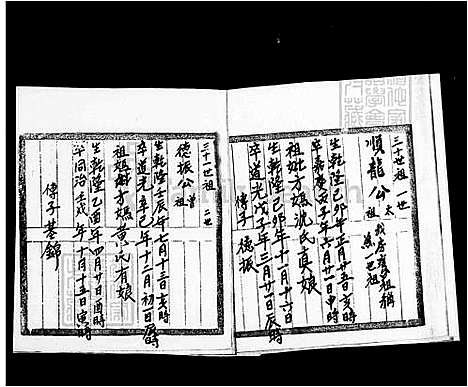 三十世祖 一世
順龍公 太祖 我房尊祖稱為一世祖
生乾隆己卯年正月廿五日亥時
卒嘉慶丙子年六月廿一日申時
祖妣方媽沈氏真娘
生乾隆己卯年十一月十六日
卒道光戊子年三月廿一日辰時
傳子 德振
三十一世祖 二世
德振公 曾祖
生乾隆壬辰年七月十三日亥時
卒道光辛巳年十二月初一日辰時
祖妣媽黃氏有娘
生乾隆乙酉年四月廿日酉時
卒同治壬戌年十月十五日寅時
傳子 基錦